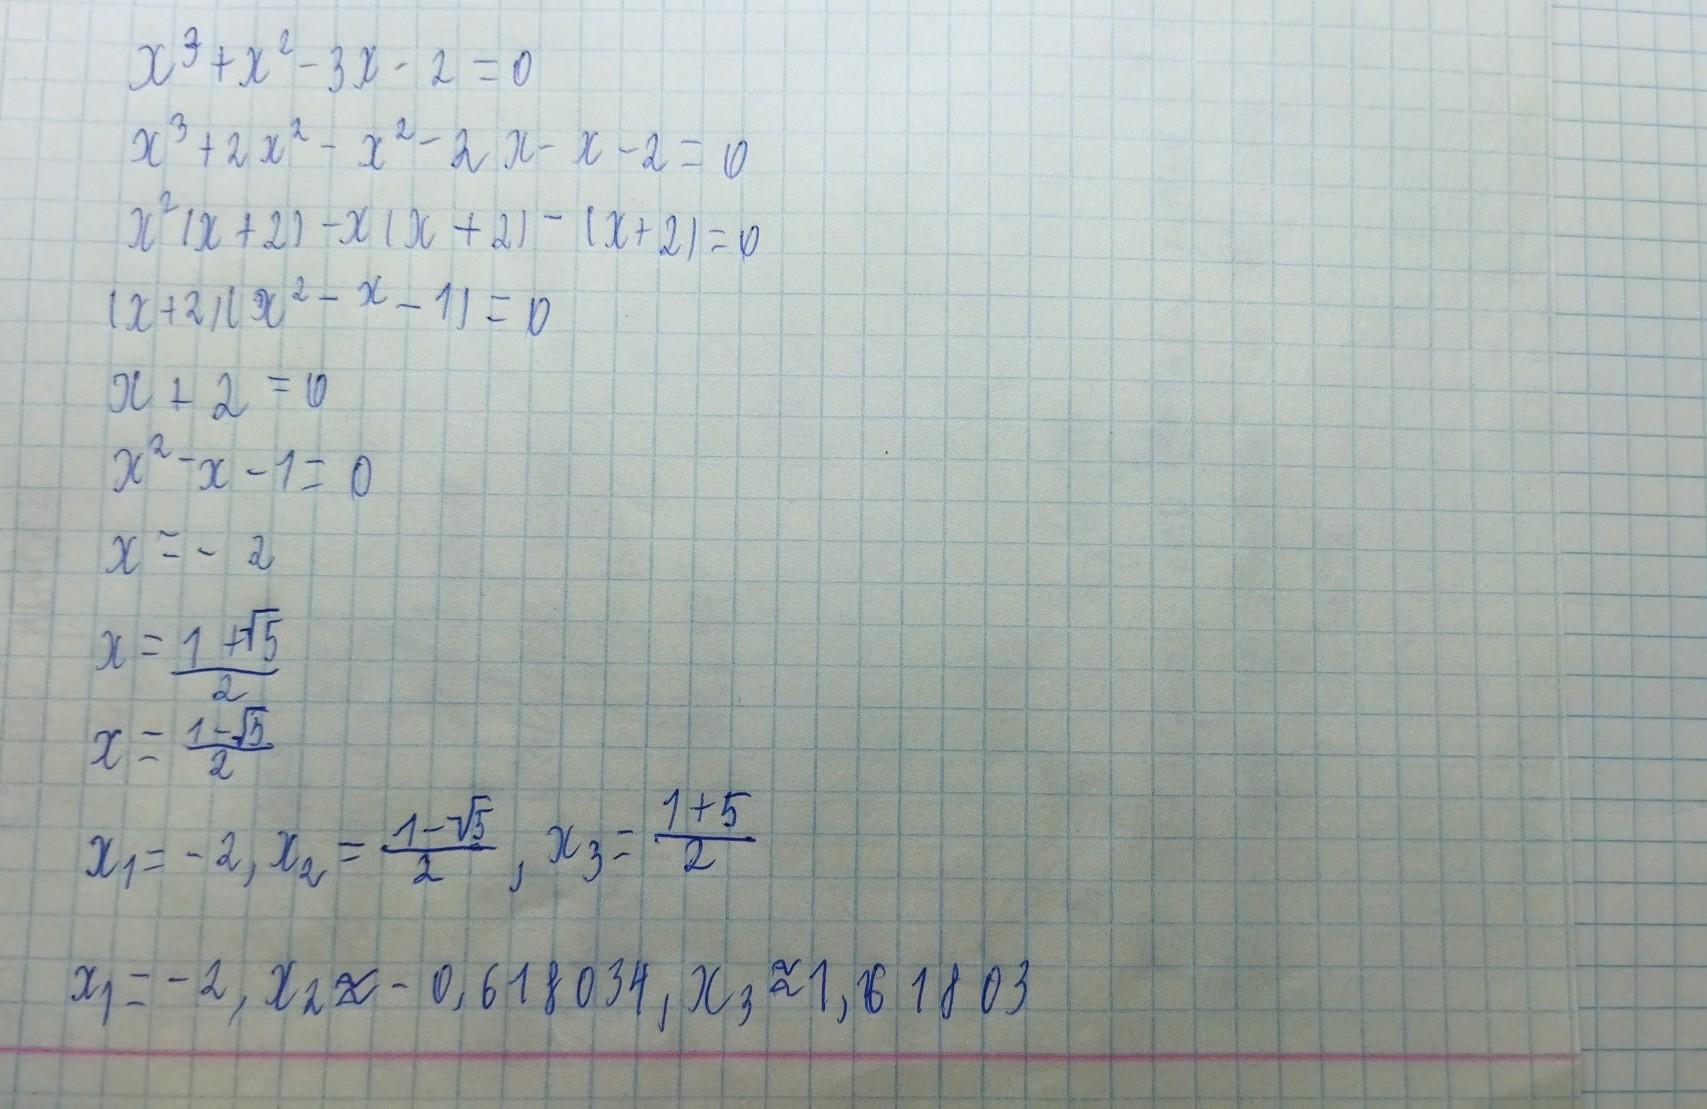 x³+x²-3x-2=0
x³+2x²-x²-2x-x-2=0
x²(x+2)-x(x+2)-(x+2)=0
(x+2)(x²-x-1)=0
x+2=0
x²-x-1=0
x=-2
x=(1+√5)/2
x=(1-√5)/2
x₁=-2, x₂=(1-√5)/2, x₃=(1+5)/2
x₁=-2, x₂≈-0,618034, x₃≈1,61803